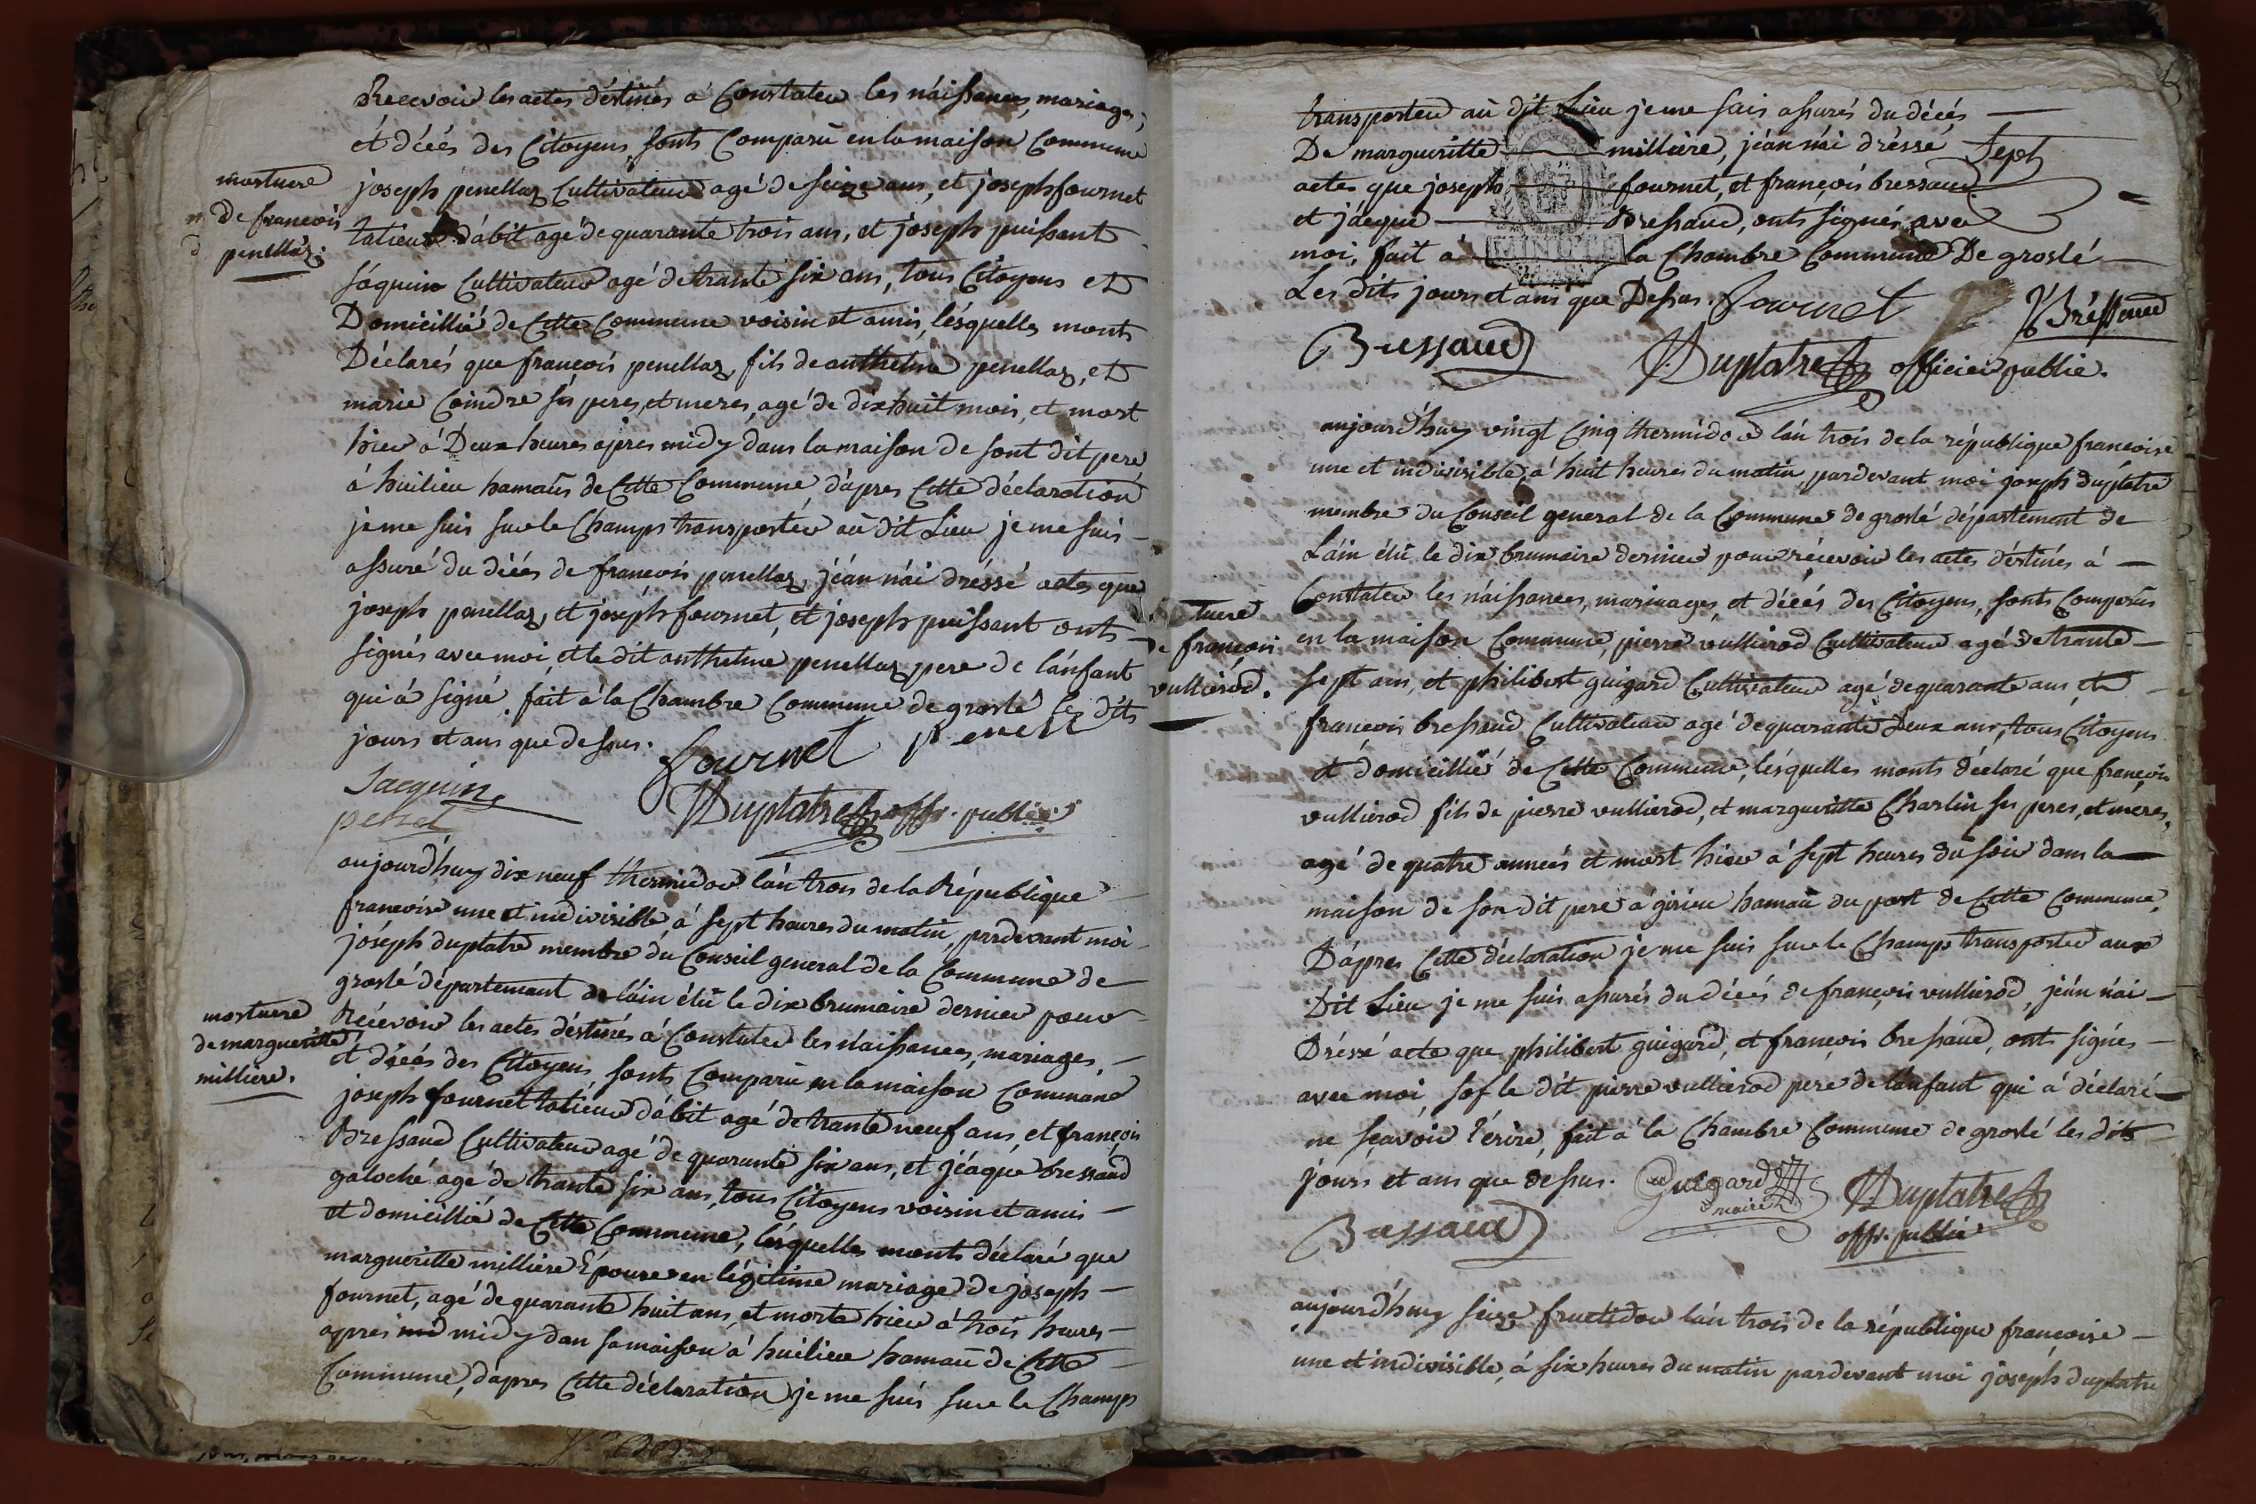 Recevoir les actes déstinés á Constater les náissances, mariages,
ét décés des Citoyens, sonts Comparù en la maison Commune
joseph penellaz Cultivateur agé de seize ans, et joseph fournet
tatieur d'ábit agé de quarante trois ans, et joseph puissent
Jáquin Cultivateur agé de trante six ans, tous Citoyens et
Domicillié de Cette Commune voisin et amis, lésquelles monts
Déclarés que françois penellaz, fils de anthelme penellaz, et
marie Coindre ses peres, et meres, agé de dix huit mois, et mort
hier á Deux heures apres midy dans la maison de sont dit pere
á huilieu hamaûs de Cette Commune, d'ápres Cette déclaration
je me suis sur le Champs transportér aû dit Lieu je me suis
assuré du décés de françois penellaz, jéan n'ái dréssé actes que
joseph penellaz, et joseph fournet, et joseph puissant onts
signés avec moi, et le dit anthelme penellaz pere de lánfant
qui á signé. fait á la Chambre Commune de groslé les dits
jours et ans que dessus.
mortuere
De françois
penellaz.
fournet
Jacquin
Duplatre offr. public
aujourd'huy dix neuf thermidor lán trois de la République
françoise une et indivisible á sept heures du matin, pardevant moi
joseph duplatre membre du Conseil general de la Commune de
groslé département de láin élû le dix brumaire dernier pour
Récevoir les actes déstinés á Constater les náissances, mariages,
et décés des Citoyens, sonts Comparù en la maison Commune
joseph fournet tatieur d'ábit agé de trante neuf ans, et françois
Bressaud Cultivateur agé de quarante six ans, et jéaque bressaud
galoché agé de trante six ans, tous Citoyens voisin et amis
et domicillié de Cette Commune, lésquelles monts déclaré que
margueritte milliere Épouse en légitime mariage de joseph
fournet, agé de quarante huit ans, et morte hier á trois heures
apres mid midy dan sa maison á huilieu hamaû de Cette
Commune, d'ápres Cette déclaration je me suis sur le Champs
mortuere
de margueritte
milliere.
transporter aû dit Lieu je me suis assurés du décés
De margueritte milliere, jéan n'ái dréssé
actes que joseph fournet, et françois bressaud
et jáque Bressaud, onts signés avec
moi, fait á la Chambre Commune De groslé
Les dits jours et ans que Dessus. fournet
Sept
Bréssaud
Bressaud
Duplatre officier public.
aujourd'huy vingt Cinq thermidor lán trois de la république françoise
une et indivisible, á huit heures du matin, pardevant moi joseph duplatre
membre du Conseil general de la Commune de groslé département de
Láin élû le dix brumaire dernier pour récevoir les actes déstinés á
Constater les náissances, mariages, et décés des Citoyens, sonts Comparûs
en la maison Commune, pierre vullierod Cultivateur agé de trante
sept ans, et philibert guigard Cultivateur agé de quarante ans, et
françois bressaud Cultivateur agé de quarante Deux ans, tous Citoyens
et domicillié de Cette Commune, lésquelles monts déclaré que françois
vullierod fils de pierre vullierod, et margueritte Charlin ses peres, et meres,
agé de quatre années et mort hier á sept heures du soir dans la
maison de son dit pere á girieu hamaû du port de Cette Commune,
D'ápres Cette déclaration je me suis sur le Champs transporter aux
Dit Lieu je me suis assurés du décés de françois vullierod, jéán n'ái
Dréssé acte que philibert guigard, et françois bressaud, onts signés
avec moi, sof le dit pierre vullierod pere de lánfant qui á déclaré
ne sçavoir l'érire, fait á la Chambre Commune de groslé les dits
jours et ans que dessus.
tuere
de françois
vullierod.
Guigard maire
Duplatre
offr. public
Bressaud
aujourd'huy seize fructidor lán trois de la république françoise
une et indivisible, á six heures du matin pardevant moi joseph duplatre